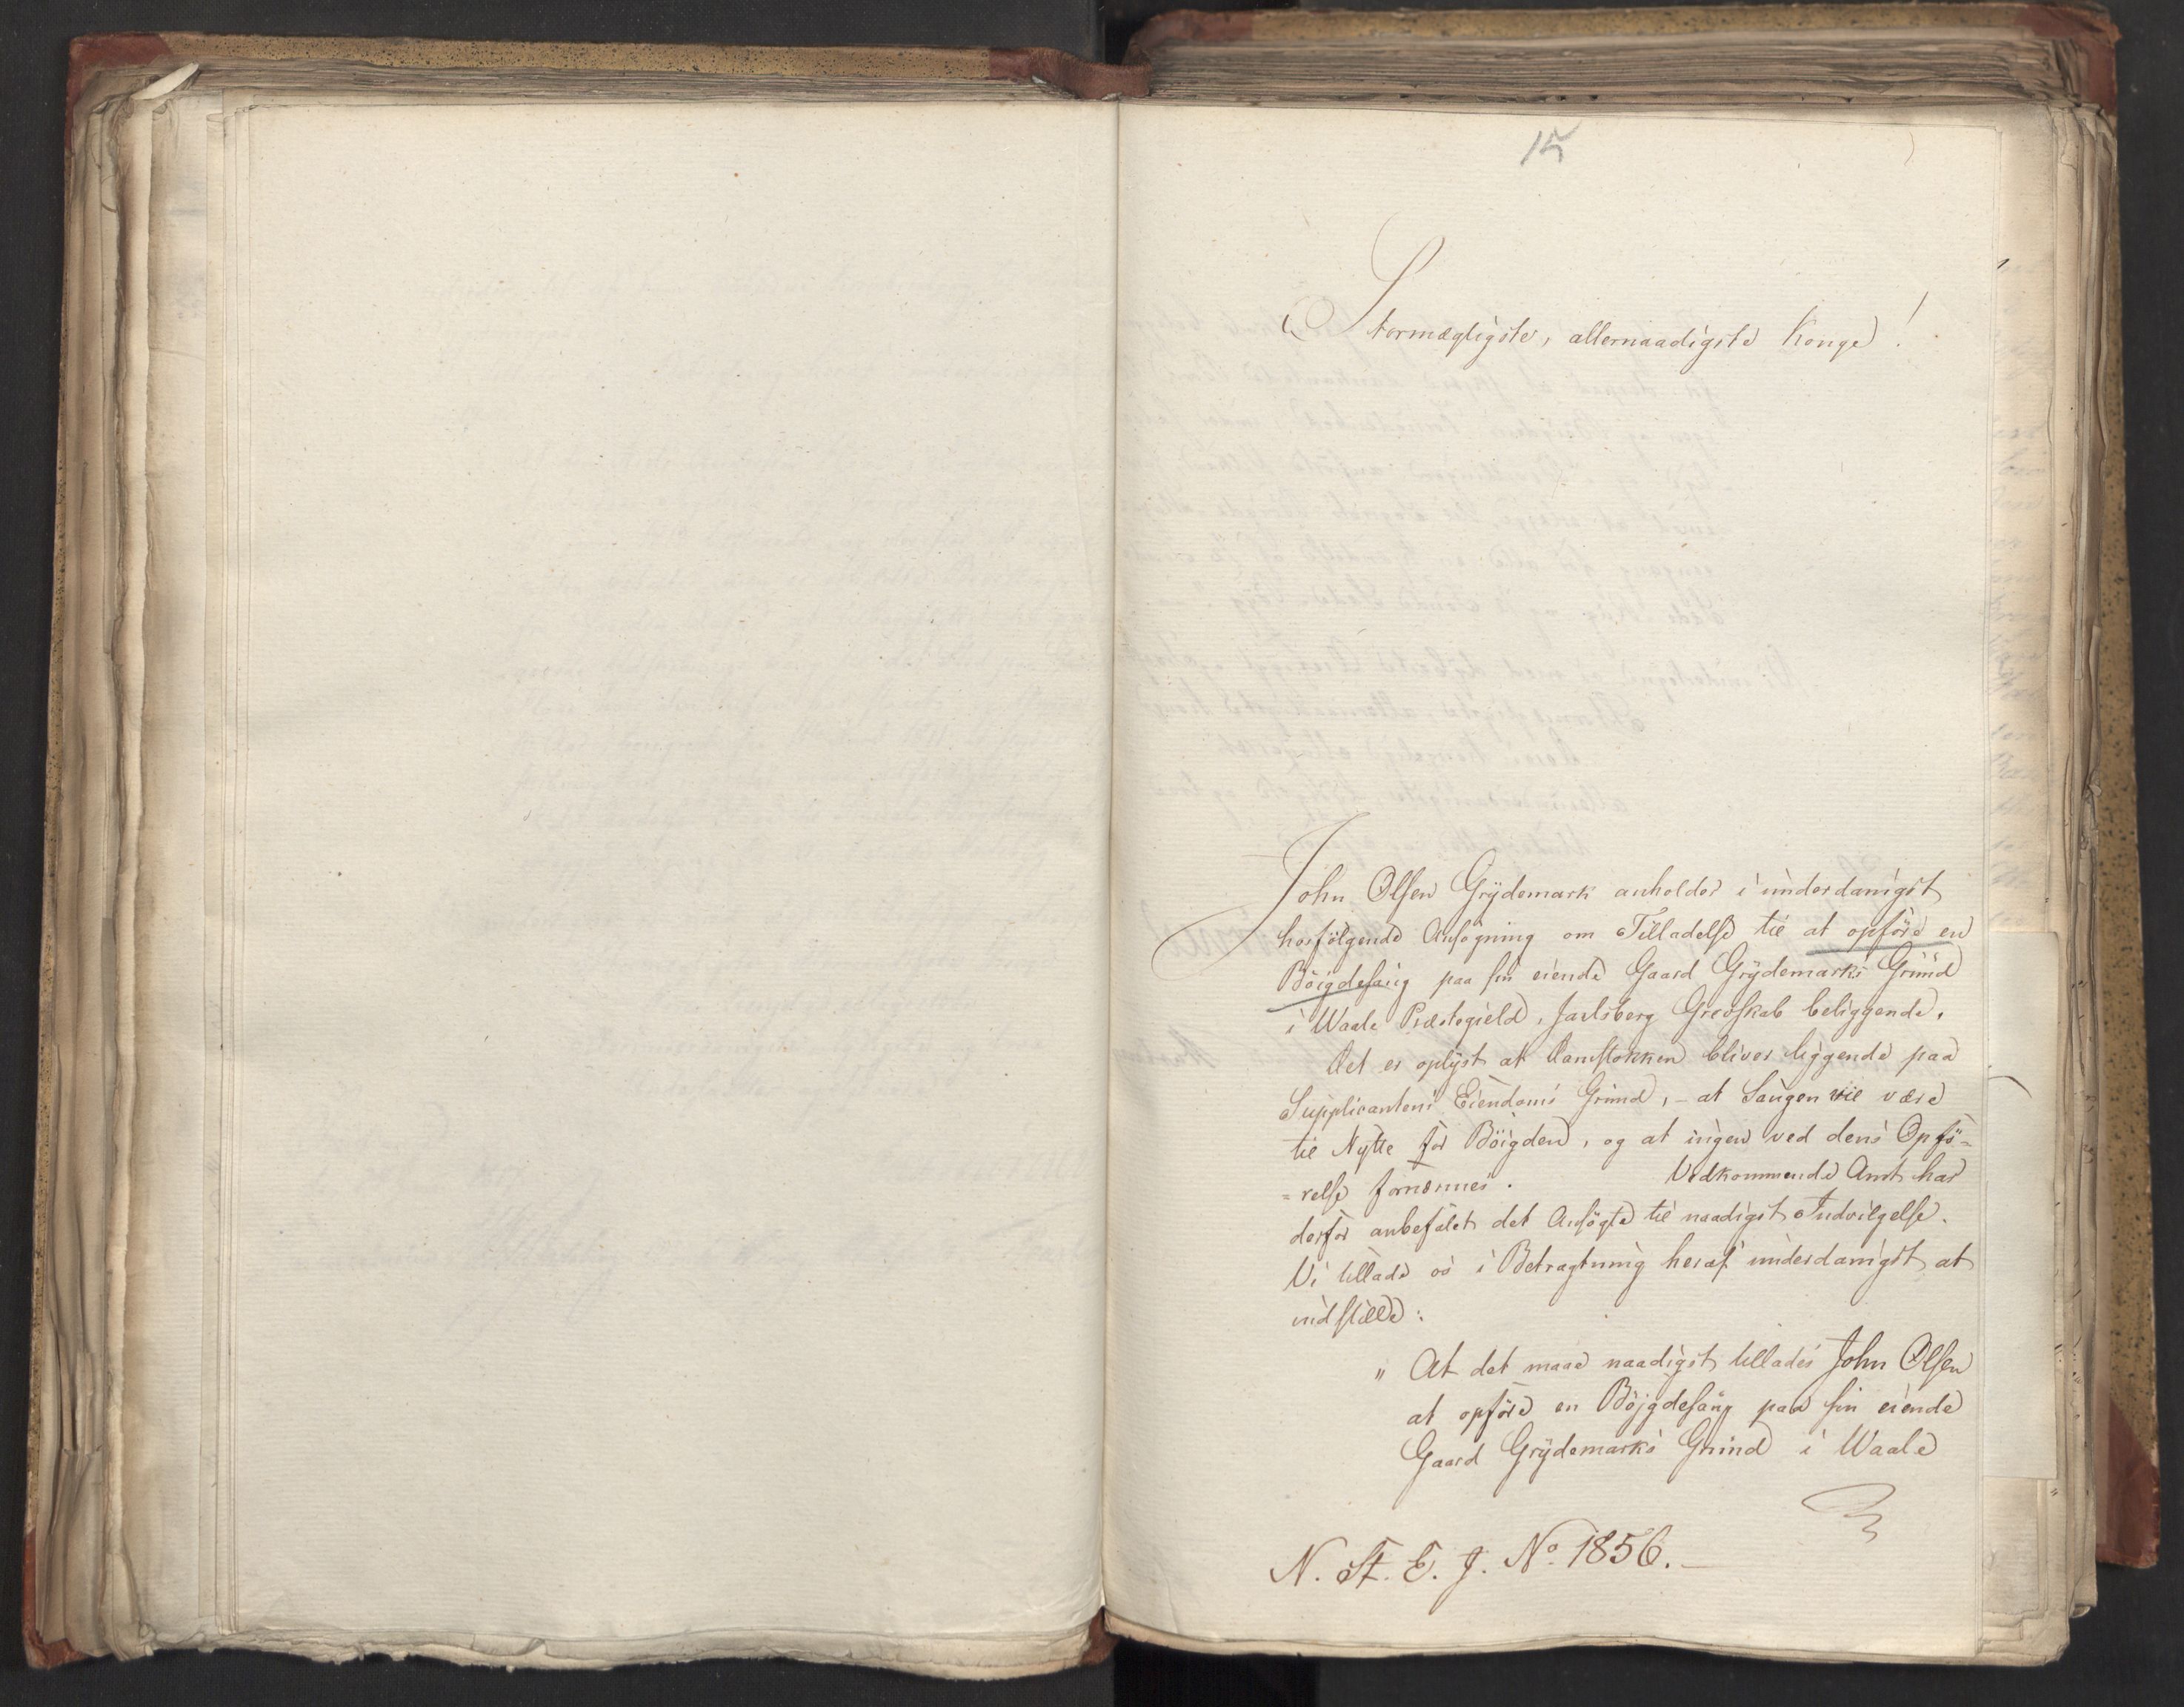 15
Stormægtigste, allernaadigste Konge!
John Olsen Grÿdemark anholder i underdanigst
hosfölgende Ansögning om Tilladelse til at opföre en
Böigdesaug paa sin eiende Gaard Grÿdemarks Grund
i Waale Præstegield, Jarlsberg Grevskab beliggende.
Det er oplÿst at Damstokken bliver liggende paa
Supplicantens Eiendoms Grund, - at Saugen vil være
til Nÿtte for Böigden, og at ingen ved dens Opfö=
=relse fornærmes. Vedkommende Amt har
derfor anbefalet det Ansögte til naadigst Indvilgelse.
Vi tillade os i Betragtning heraf underdanigst at
indstille:
" At det maae naadigst tillades John Olsen
at opföre en Böjgdesaug paa sin eiende
Gaard Grÿdemarks Grund i Waale
N. St. E. J. No. 1856.